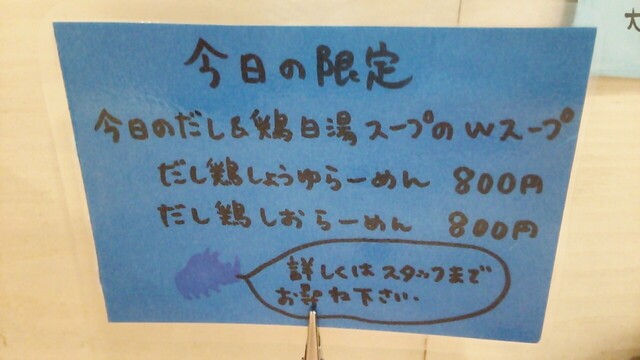 今日の限定
今日のだし&鶏白湯スープのWスープ
だし鶏しょうゆらーめん 800円
だし鶏しおらーめん 800円
詳しくはスタッフまで
お尋ね下さい.
大